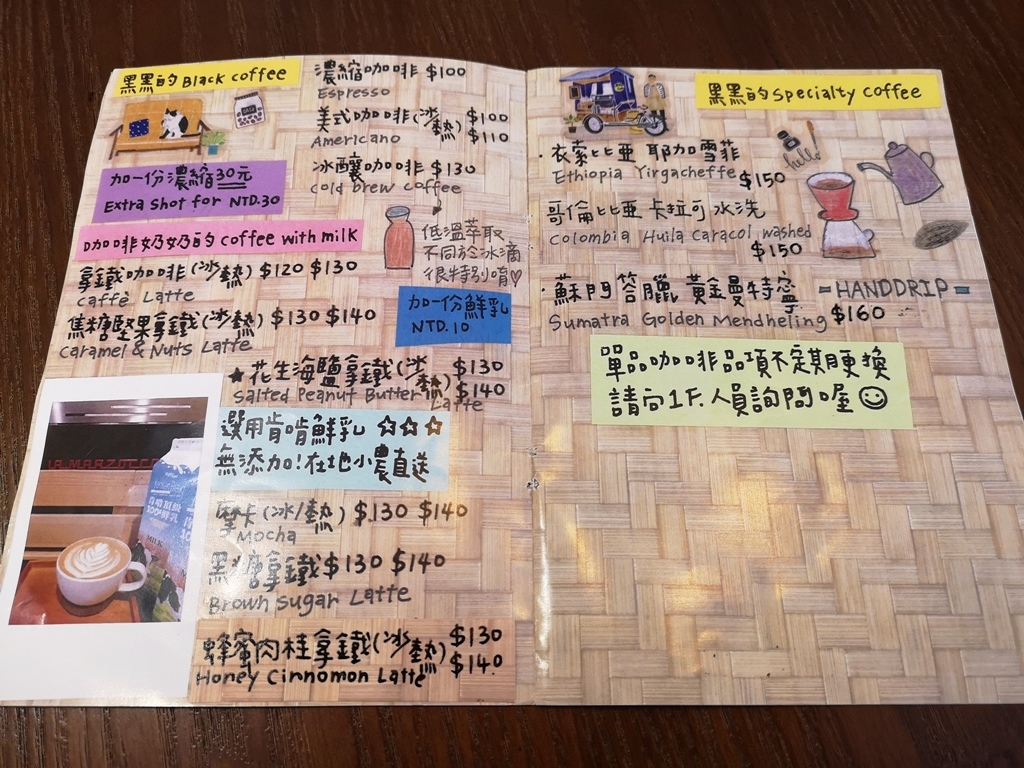 黑黑的 Black coffee
濃縮咖啡 $100
Espresso
美式咖啡(冰/熱) $100 $110
Americano
冰釀咖啡 $130
cold brew coffee
低溫萃取
不同於冰滴
很特別唷♡
加一份濃縮30元
Extra shot for NTD.30
咖啡奶奶的 coffee with milk
拿鐵咖啡(冰熱) $120 $130
caffè Latte
焦糖堅果拿鐵(冰/熱) $130 $140
caramel & Nuts Latte
加一份鮮乳
NTD.10
★花生海鹽拿鐵(冰/熱) $130 $140
Salted Peanut Butter Latte
選用肯啃鮮乳 ☆☆☆
無添加!在地小農直送
摩卡(冰/熱) $130 $140
Mocha
黑糖拿鐵 $130 $140
Brown sugar Latte
蜂蜜肉桂拿鐵(冰/熱) $130 $140
Honey Cinnomon Latte
MILK
黑黑的 specialty coffee
hello
·衣索比亞 耶加雪菲
Ethiopia Yirgacheffe $150
哥倫比亞 卡拉可 水洗
colombia Huila caracol washed
$150
·蘇門答臘 黃金曼特寧
Sumatra Golden Mendheling $160
-HANDDRIP-
單品咖啡品項不定期更換
請向1F.人員詢問喔☺